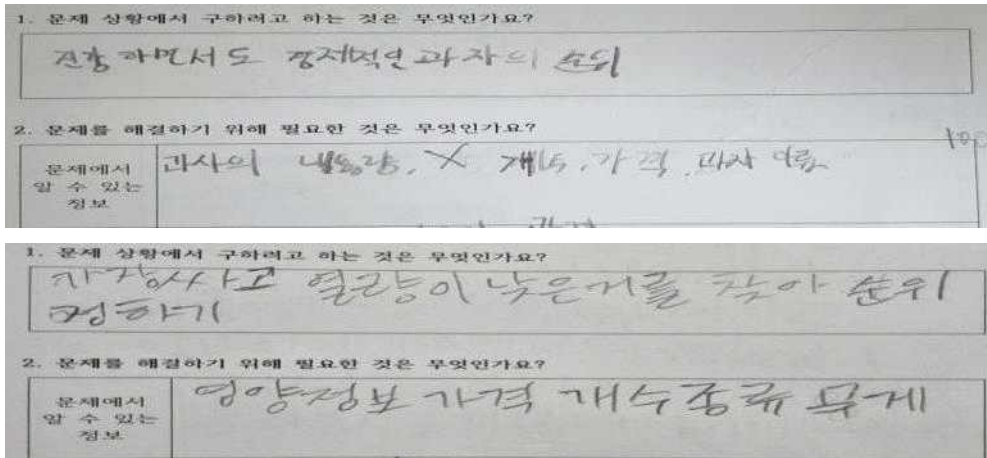 1. 문제 상황에서 구하려고 하는 것은 무엇인가요?
건강하면서도 경제적인 과자의 순위
2. 문제를 해결하기 위해 필요한 것은 무엇인가요?
문제에서
알 수 있는
정보
과자의 내용량, X 개수, 가격, 과자 이름
1. 문제 상황에서 구하려고 하는 것은 무엇인가요?
가장싸고 열량이 낮은거를 찾아 순위
정하기
2. 문제를 해결하기 위해 필요한 것은 무엇인가요?
문제에서
알 수 있는
정보
영양정보 가격 개수 종류 무게